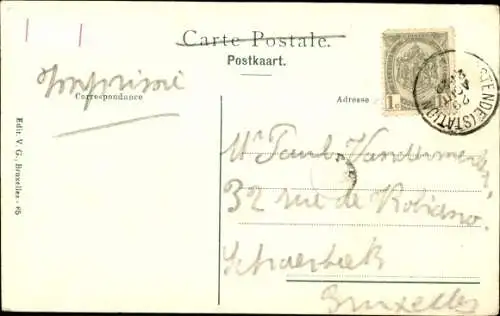 Carte Postale.
Postkaart.
Imprimé
Correspondance
Adresse
1 c
OSTENDE (STATION)
29
AOU
Edit. V. G., Bruxelles - 65
Mr Paul Vandermeulen,
32 rue de Robiano.
Schaerbeek
Bruxelles